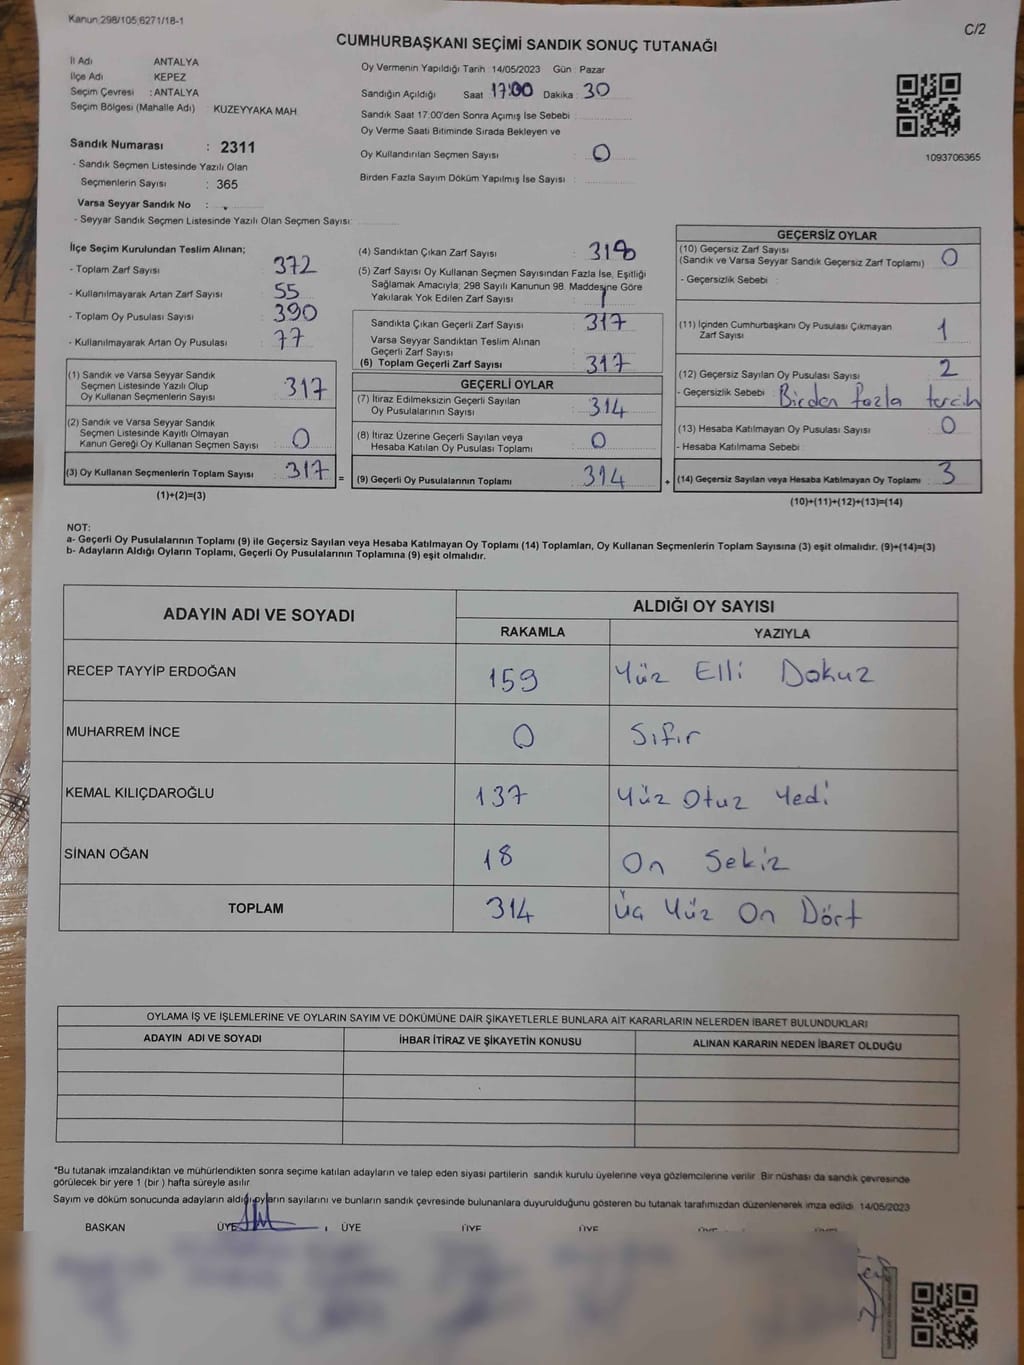 Kanun 298/105,6271/18-1
C/2
CUMHURBAŞKANI SEÇİMİ SANDIK SONUÇ TUTANAĞI
İl Adı ANTALYA
İlçe Adı KEPEZ
Seçim Çevresi : ANTALYA
Seçim Bölgesi (Mahalle Adı) KUZEYYAKA MAH
Sandık Numarası : 2311
- Sandık Seçmen Listesinde Yazılı Olan
Seçmenlerin Sayısı : 365
Varsa Seyyar Sandık No :
- Seyyar Sandık Seçmen Listesinde Yazılı Olan Seçmen Sayısı:
Oy Vermenin Yapıldığı Tarih : 14/05/2023 Gün : Pazar
Sandığın Açıldığı Saat 17:00 Dakika : 30
Sandık Saat 17:00'den Sonra Açımış İse Sebebi :
Oy Verme Saati Bitiminde Sırada Bekleyen ve
Oy Kullandırılan Seçmen Sayısı : 0
Birden Fazla Sayım Döküm Yapılmış İse Sayısı :
1093706365
İlçe Seçim Kurulundan Teslim Alınan;
- Toplam Zarf Sayısı : 372
- Kullanılmayarak Artan Zarf Sayısı : 55
- Toplam Oy Pusulası Sayısı : 390
- Kullanılmayarak Artan Oy Pusulası : 77
(1) Sandık ve Varsa Seyyar Sandık
Seçmen Listesinde Yazılı Olup
Oy Kullanan Seçmenlerin Sayısı : 317
(2) Sandık ve Varsa Seyyar Sandık
Seçmen Listesinde Kayıtlı Olmayan
Kanun Gereği Oy Kullanan Seçmen Sayısı : 0
(3) Oy Kullanan Seçmenlerin Toplam Sayısı : 317
(1)+(2)=(3)
(4) Sandıktan Çıkan Zarf Sayısı : 318
(5) Zarf Sayısı Oy Kullanan Seçmen Sayısından Fazla İse, Eşitliği
Sağlamak Amacıyla; 298 Sayılı Kanunun 98. Maddesine Göre
Yakılarak Yok Edilen Zarf Sayısı : 1
Sandıkta Çıkan Geçerli Zarf Sayısı : 317
Varsa Seyyar Sandıktan Teslim Alınan
Geçerli Zarf Sayısı :
(6) Toplam Geçerli Zarf Sayısı : 317
GEÇERLİ OYLAR
(7) İtiraz Edilmeksizin Geçerli Sayılan
Oy Pusulalarının Sayısı : 314
(8) İtiraz Üzerine Geçerli Sayılan veya
Hesaba Katılan Oy Pusulası Toplamı : 0
= (9) Geçerli Oy Pusulalarının Toplamı : 314
GEÇERSİZ OYLAR
(10) Geçersiz Zarf Sayısı
(Sandık ve Varsa Seyyar Sandık Geçersiz Zarf Toplamı) : 0
- Geçersizlik Sebebi :
(11) İçinden Cumhurbaşkanı Oy Pusulası Çıkmayan
Zarf Sayısı : 1
(12) Geçersiz Sayılan Oy Pusulası Sayısı : 2
- Geçersizlik Sebebi : Birden fazla tercih
(13) Hesaba Katılmayan Oy Pusulası Sayısı : 0
- Hesaba Katılmama Sebebi :
+ (14) Geçersiz Sayılan veya Hesaba Katılmayan Oy Toplamı : 3
(10)+(11)+(12)+(13)=(14)
NOT:
a- Geçerli Oy Pusulalarının Toplamı (9) ile Geçersiz Sayılan veya Hesaba Katılmayan Oy Toplamı (14) Toplamları, Oy Kullanan Seçmenlerin Toplam Sayısına (3) eşit olmalıdır. (9)+(14)=(3)
b- Adayların Aldığı Oyların Toplamı, Geçerli Oy Pusulalarının Toplamına (9) eşit olmalıdır.
ADAYIN ADI VE SOYADI ALDIĞI OY SAYISI
RAKAMLA YAZIYLA
RECEP TAYYİP ERDOĞAN 159 Yüz Elli Dokuz
MUHARREM İNCE 0 Sıfır
KEMAL KILIÇDAROĞLU 137 Yüz Otuz Yedi
SİNAN OĞAN 18 On Sekiz
TOPLAM 314 Üç Yüz On Dört
OYLAMA İŞ VE İŞLEMLERİNE VE OYLARIN SAYIM VE DÖKÜMÜNE DAİR ŞİKAYETLERLE BUNLARA AİT KARARLARIN NELERDEN İBARET BULUNDUKLARI
ADAYIN ADI VE SOYADI İHBAR İTİRAZ VE ŞİKAYETİN KONUSU ALINAN KARARIN NEDEN İBARET OLDUĞU
*Bu tutanak imzalandıktan ve mühürlendikten sonra seçime katılan adayların ve talep eden siyasi partilerin sandık kurulu üyelerine veya gözlemcilerine verilir. Bir nüshası da sandık çevresinde
görülecek bir yere 1 (bir ) hafta süreyle asılır.
Sayım ve döküm sonucunda adayların aldığı oyların sayılarını ve bunların sandık çevresinde bulunanlara duyurulduğunu gösteren bu tutanak tarafımızdan düzenlenerek imza edildi. 14/05/2023
BAŞKAN ÜYE ÜYE ÜYE ÜYE